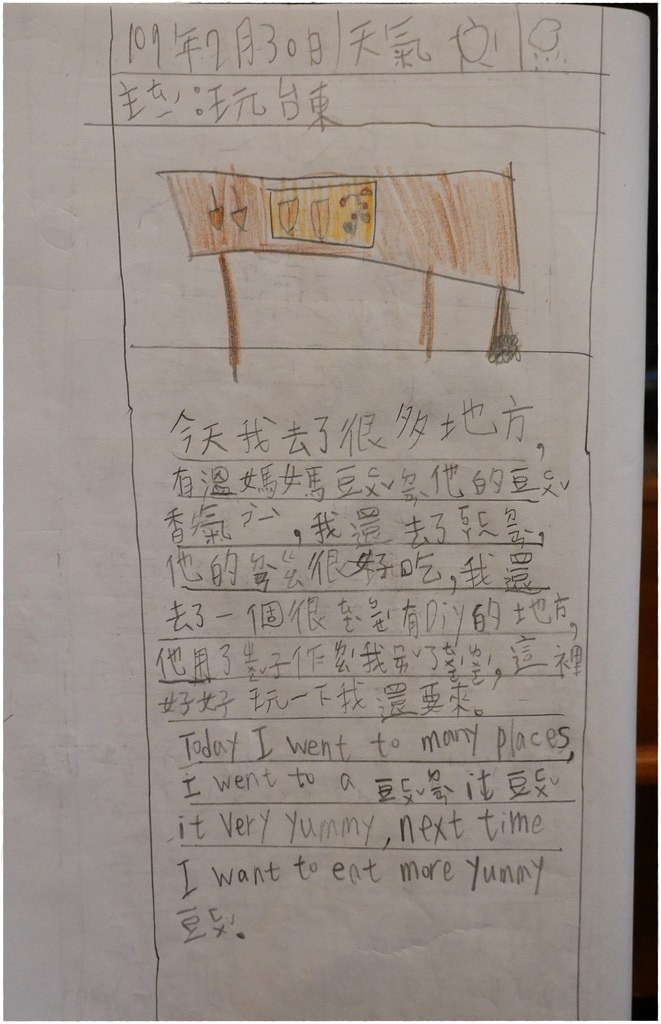 107年7月30日 天氣
主 :玩台東
今天我去了很多地方,
有溫媽媽豆ㄈㄨˇ 他的豆ㄈㄨˇ
香氣 ,我還去了 ,
他的 很好吃,我還
去了一個很 有Diy的地方,
他用了 子作 我 了 ,這裡
好好玩一下我還要來。
Today I went to many places,
I went to a 豆ㄈㄨˇ it 豆ㄈㄨˇ
it very yummy, next time
I want to eat more yummy
豆ㄈㄨˇ.